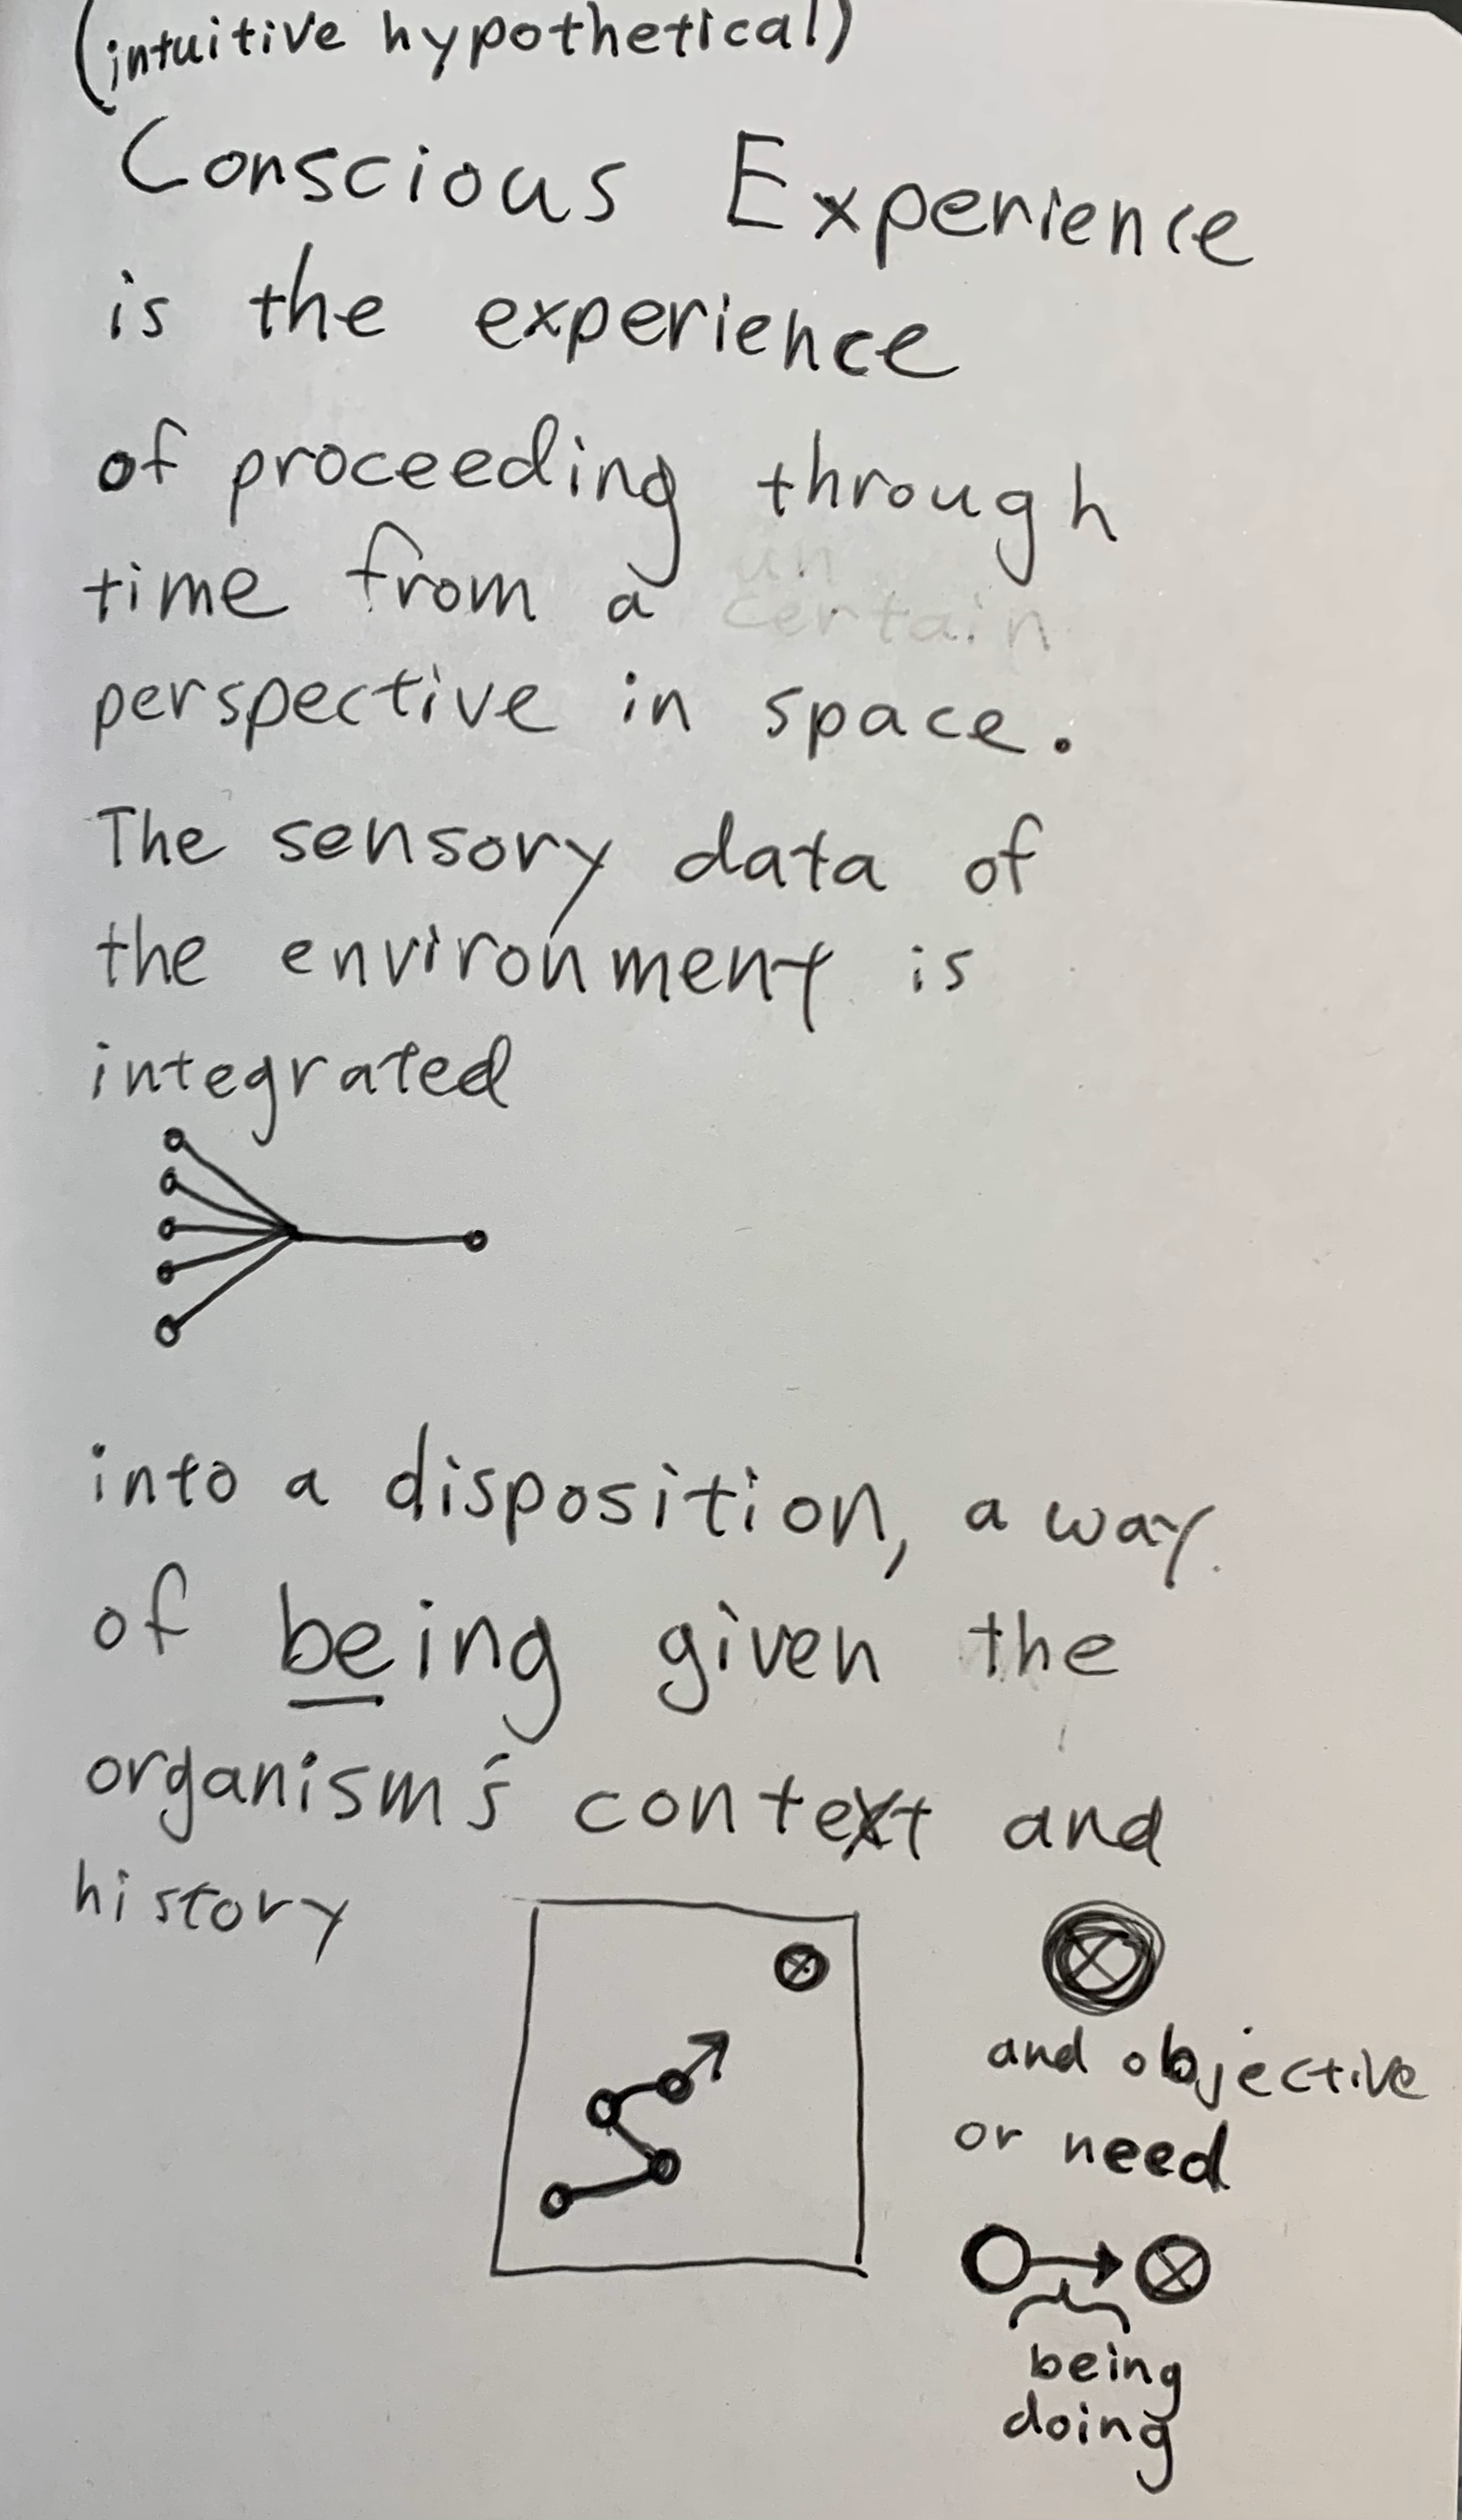 (intuitive hypothetical)
Conscious Experience
is the experience
of proceeding through
un
time from a certain
perspective in space.
The sensory data of
the environment is
integrated
into a disposition, a way
of being given the
organism's context and
history
and objective
or need
being
doing